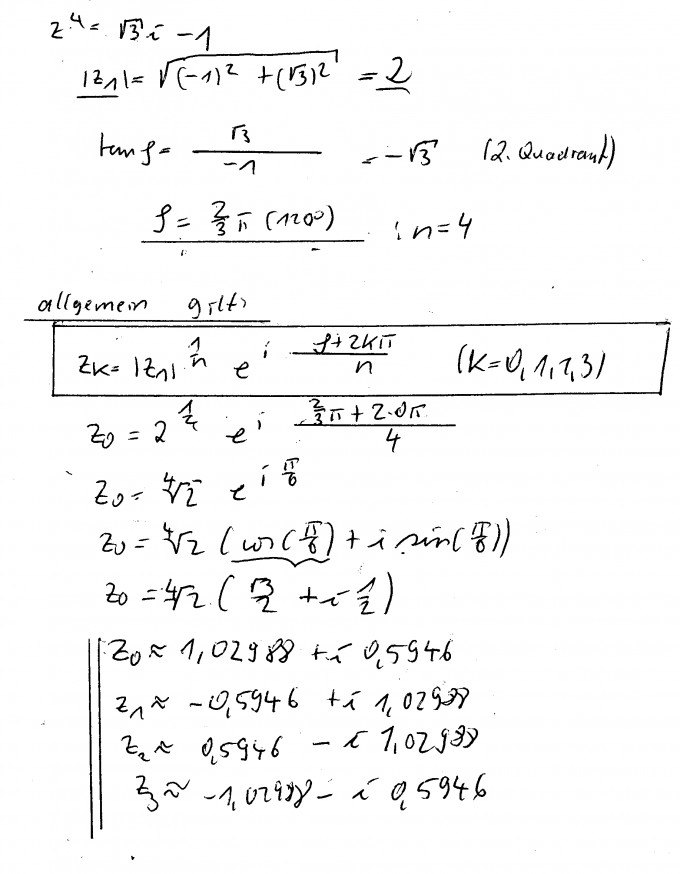 z^4 = √3 i - 1
|z1| = √((-1)^2 + (√3)^2) = 2
tan φ = √3 / -1 = -√3 (2. Quadrant)
φ = 2/3 π (120°) ; n = 4
allgemein gilt:
zK = |z1|^(1/n) e^(i (φ+2kπ)/n) (K=0,1,2,3)
z0 = 2^(1/4) e^(i (2/3 π + 2·0π)/4)
z0 = ∜2 e^(i π/6)
z0 = ∜2 (cos(π/6) + i sin(π/6))
z0 = ∜2 (√3/2 + i 1/2)
z0 ≈ 1,02988 + i 0,5946
z1 ≈ -0,5946 + i 1,02988
z2 ≈ 0,5946 - i 1,02988
z3 ≈ -1,02988 - i 0,5946